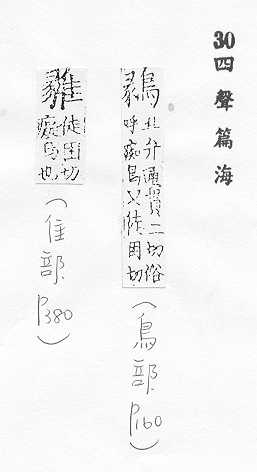 30四聲篇海
鶨
丑弁通貫二切俗
呼痴鳥又徒困切
(鳥部 P160)
徒困切
癡鳥也
(隹部 P380)